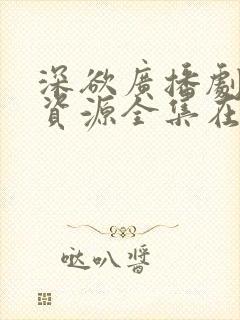 深欲廣播劇
資源全集在
哒叭醬